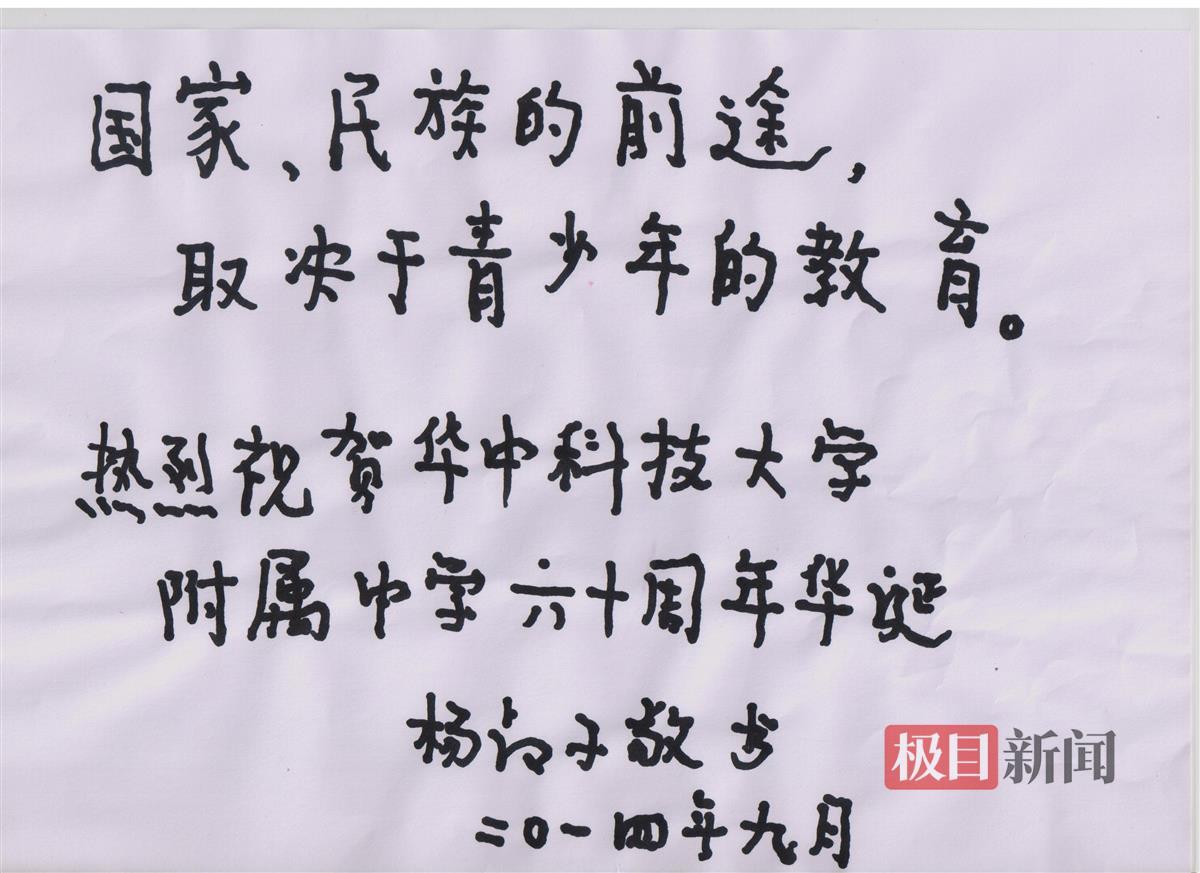 国家、民族的前途,
取决于青少年的教育。
热烈祝贺华中科技大学
附属中学六十周年华诞
杨叔子敬书
二〇一四年九月
极目新闻